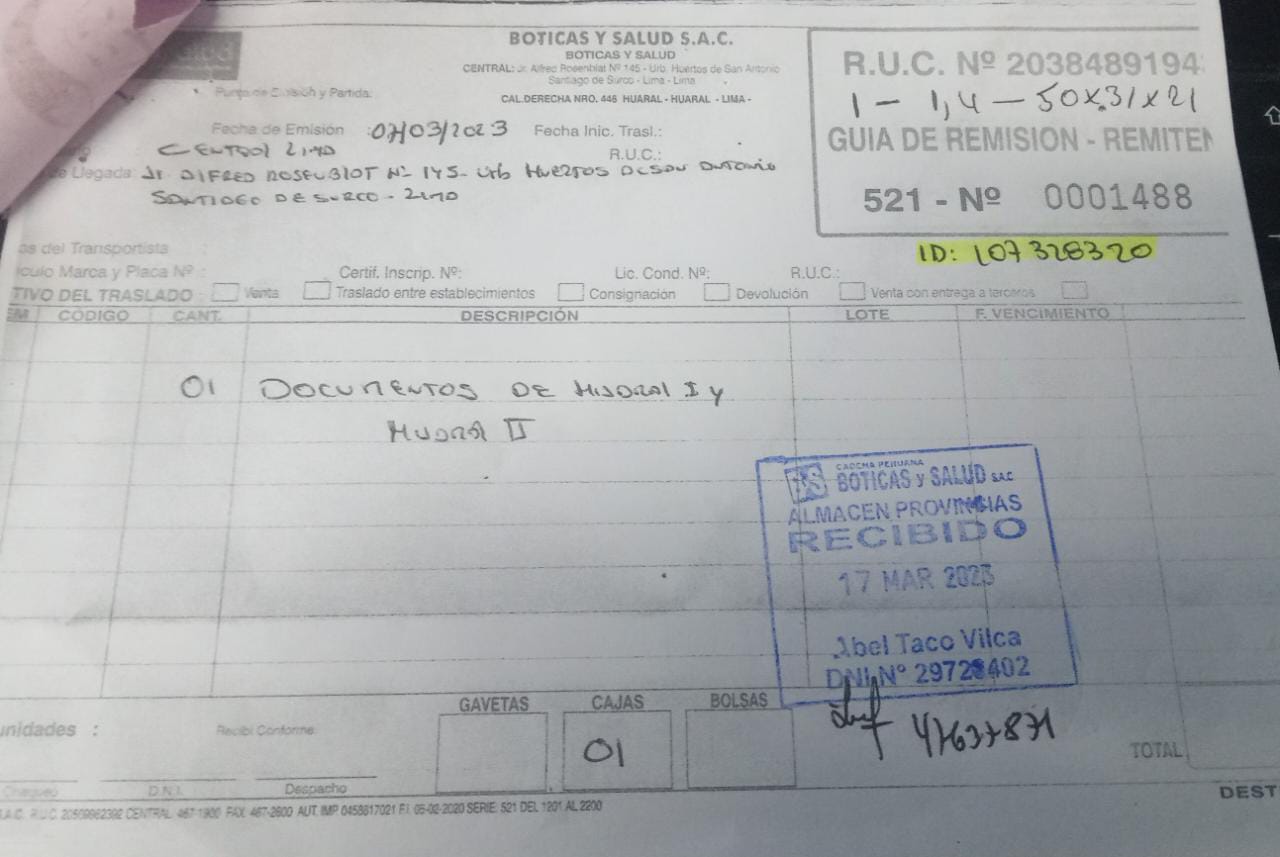 BOTICAS Y SALUD S.A.C.
BOTICAS Y SALUD
CENTRAL: Jr. Alfred Rosenblat Nº 145 - Urb. Huertos de San Antonio
Santiago de Surco - Lima - Lima
CAL.DERECHA NRO. 446 HUARAL - HUARAL - LIMA -
R.U.C. Nº 2038489194
1 - 1,4 - 50x31x21
GUIA DE REMISION - REMITEN
521 - Nº 0001488
ID: 107328320
Punto de Emisión y Partida:
Fecha de Emisión : 07/03/2023 Fecha Inic. Trasl.:
CENTRAL LIMA R.U.C.:
de Llegada: Jr. ALFRED ROSENBLOT Nº 145 - Urb HUERTOS DE SAN ANTONIO
SANTIAGO DE SURCO - LIMA
os del Transportista :
ículo Marca y Placa Nº : Certif. Inscrip. Nº: Lic. Cond. Nº: R.U.C.:
TIVO DEL TRASLADO : Venta Traslado entre establecimientos Consignación Devolución Venta con entrega a terceros
EM CÓDIGO CANT. DESCRIPCIÓN LOTE F. VENCIMIENTO
01 DOCUMENTOS DE HUARAL I y
HUARAL II
CADENA PERUANA
BS BOTICAS y SALUD SAC
ALMACEN PROVINCIAS
RECIBIDO
17 MAR 2023
Abel Taco Vilca
DNI Nº 29728402
47637871
GAVETAS CAJAS BOLSAS
unidades : Recibí Conforme:
01
TOTAL
Chequeo D.N.I. Despacho
DEST
A.C. R.U.C. 20509882392 CENTRAL: 467-1900 FAX: 467-2600 AUT. IMP. 0458817021 F.I. 05-02-2020 SERIE: 521 DEL 1201 AL 2200